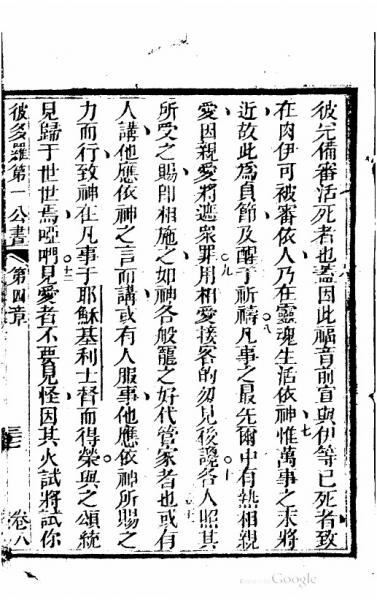 彼先備審活死者也蓋因此福音前宣與伊等已死者致
七
在肉伊可被審依人乃在靈魂生活依神惟萬事之末將
八
近故此為貞節及醒于祈禱凡事之最先爾中有熱相親
九
愛因親愛將遮衆罪用相愛接客的勿見後譏各人照其
十
所受之賜卽相施之如神各般寵之好代管家者也或有
十一
人講他應依神之言而講或有人服事他應依神所賜之
力而行致神在凡事于耶穌基利士督而得榮與之頌統
見歸于世世焉啞㗻見愛者不要見怪因其火試將試你
十二
彼多羅第一公書 第四章 三 卷八
Google